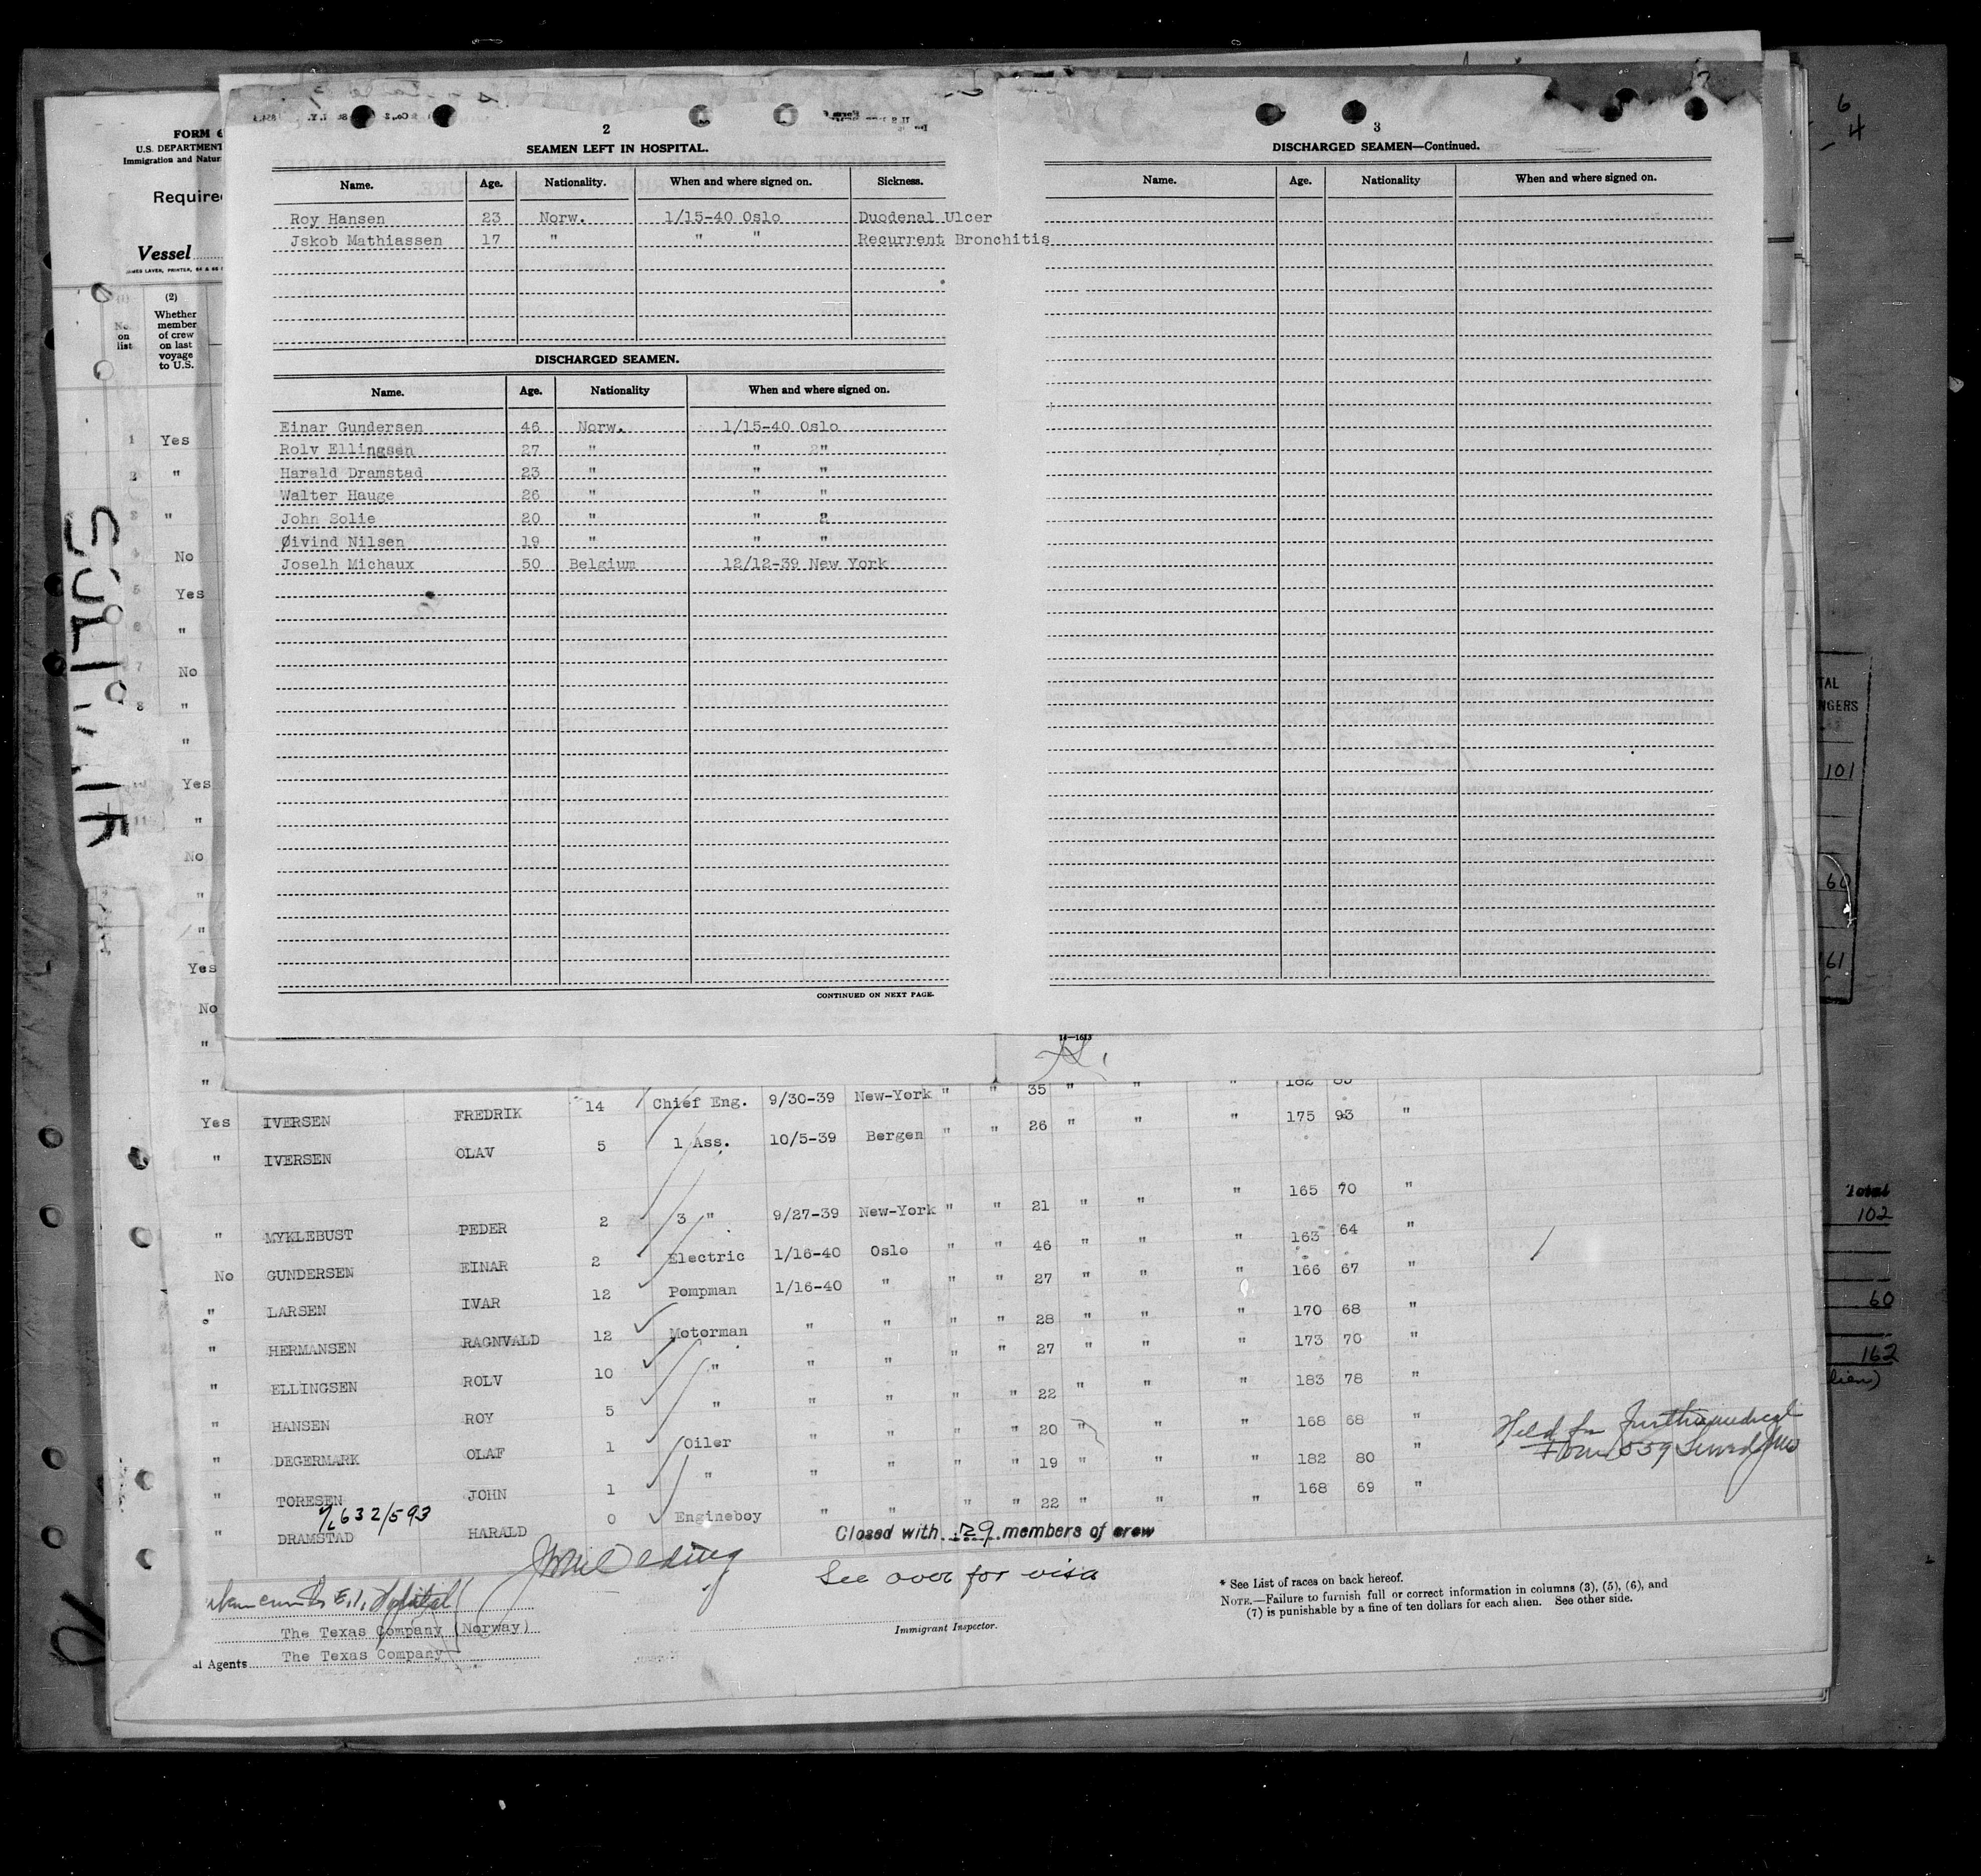 6
4
FORM 6
U.S. DEPARTMENT
Immigration and Natur
Required
Vessel
(2)
No. on list
Whether member of crew on last voyage to U.S.
1 Yes
2 "
3 "
4 No
5 Yes
6 "
7 No
8 "
"
10 Yes
11 "
No
"
"
Yes
No
"
"
2
SEAMEN LEFT IN HOSPITAL.
Name. Age. Nationality. When and where signed on. Sickness.
Roy Hansen 23 Norw. 1/15-40 Oslo Duodenal Ulcer
Jskob Mathiassen 17 " " " Recurrent Bronchitis
DISCHARGED SEAMEN.
Name. Age. Nationality When and where signed on.
Einar Gundersen 46 Norw. 1/15-40 Oslo
Rolv Ellingsen 27 " " "
Harald Dramstad 23 " " "
Walter Hauge 26 " " "
John Solie 20 " " 2
Øivind Nilsen 19 " " "
Joselh Michaux 50 Belgium 12/12-39 New York
CONTINUED ON NEXT PAGE.
3
DISCHARGED SEAMEN—Continued.
Name. Age. Nationality When and where signed on.
14—1613
TAL
NGERS
101
60
161
Total
102
60
162
Yes IVERSEN FREDRIK 14 Chief Eng. 9/30-39 New-York " " 35 " " " 182
" IVERSEN OLAV 5 1 Ass. 10/5-39 Bergen " " 26 " " " 175 93 "
" MYKLEBUST PEDER 2 3 " 9/27-39 New-York " " 21 " " " 165 70 "
No GUNDERSEN EINAR 2 Electric 1/16-40 Oslo " " 46 " " " 163 64 "
" LARSEN IVAR 12 Pompman 1/16-40 " " " 27 " " " 166 67 "
" HERMANSEN RAGNVALD 12 Motorman " " " " 28 " " " 170 68 "
" ELLINGSEN ROLV 10 " " " " " 27 " " " 173 70 "
" HANSEN ROY 5 " " " " " 22 " " " 183 78 "
" DEGERMARK OLAF 1 Oiler " " " " 20 " " " 168 68 "
" TORESEN JOHN 1 " " " " " 19 " " " 182 80 "
" DRAMSTAD HARALD 0 Engineboy " " " " 22 " " " 168 69 "
632/593
Held for further medical
Form 559 Served
Closed with 29 members of crew
See over for visa
E.I. Hospital
The Texas Company (Norway)
al Agents The Texas Company
Immigrant Inspector.
* See List of races on back hereof.
NOTE.—Failure to furnish full or correct information in columns (3), (5), (6), and
(7) is punishable by a fine of ten dollars for each alien. See other side.